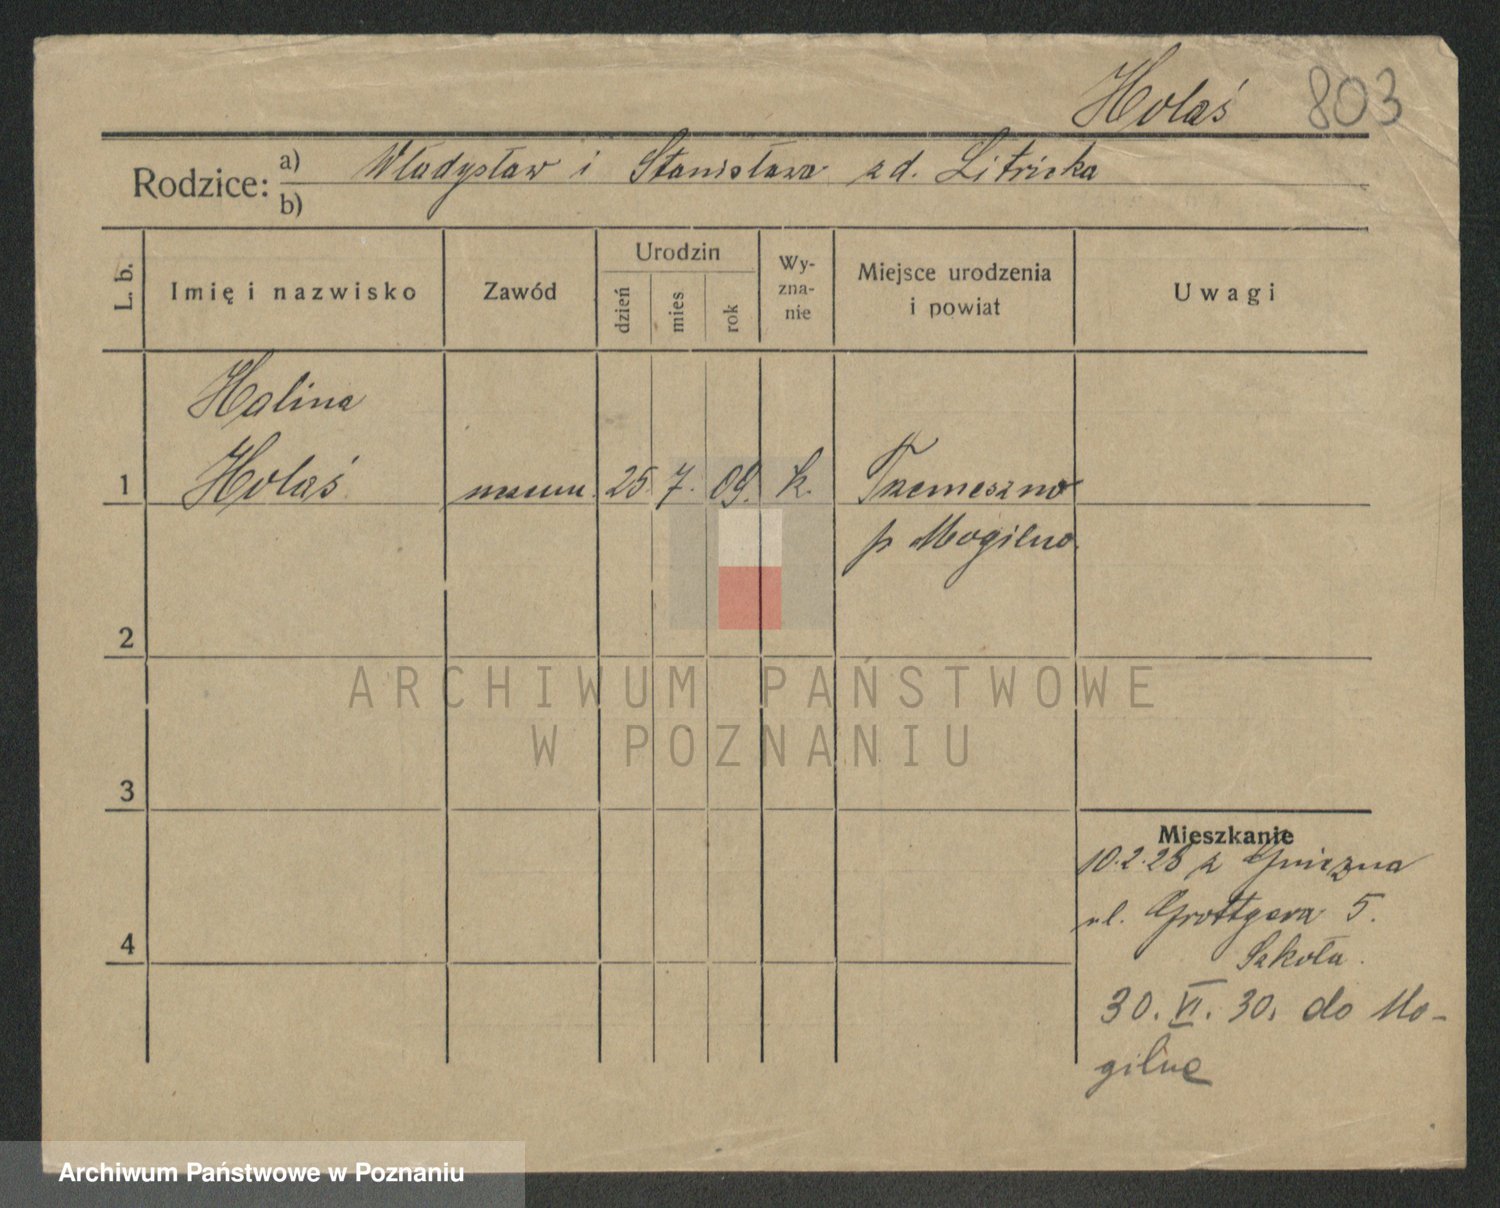 Holaś 803
Rodzice: a) Władysław i Stanisława zd. Litricka
b)
L. b. Imię i nazwisko Zawód Urodzin dzień mies rok Wy-zna-nie Miejsce urodzenia i powiat Uwagi
Halina
1 Holaś 25. 7. 09. k. Trzemeszno
p Mogilno.
2
ARCHIWUM PAŃSTWOWE
W POZNANIU
3
Mieszkanie
10.2.28 z Gniezna
ul. Grottgera 5.
4
Szkoła.
30. VI. 30. do Mo-
gilne
Archiwum Państwowe w Poznaniu